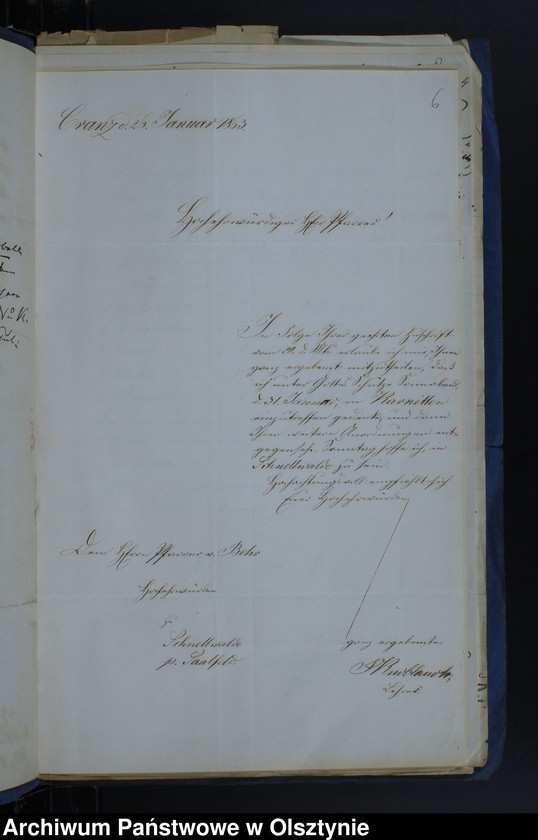 6
Cranz d. Januar 1853.
Hochehrwürdiger Herr Pfarrer!
In Folge Ihrer geehrten Zuschrift
vom d. Mts. erlaube ich mir, Ihnen
ganz ergebenst mitzutheilen, daß
ich unter Gottes Schutze Sonnabend
d. 31. Januar, in Karnitten
einzutreffen gedenke, und dann
Ihren weitern Anordnungen ent-
gegensehe. Sonntag hoffe ich, in
Schnellwalde zu sein.
Hochachtungsvoll empfiehlt sich
Euer Hochehrwürden
Dem Herrn Pfarrer v. Behr
Hochehrwürden
zu
Schnellwalde
p. Saalfeld.
ganz ergebenster
Lehrer.
Archiwum Państwowe w Olsztynie